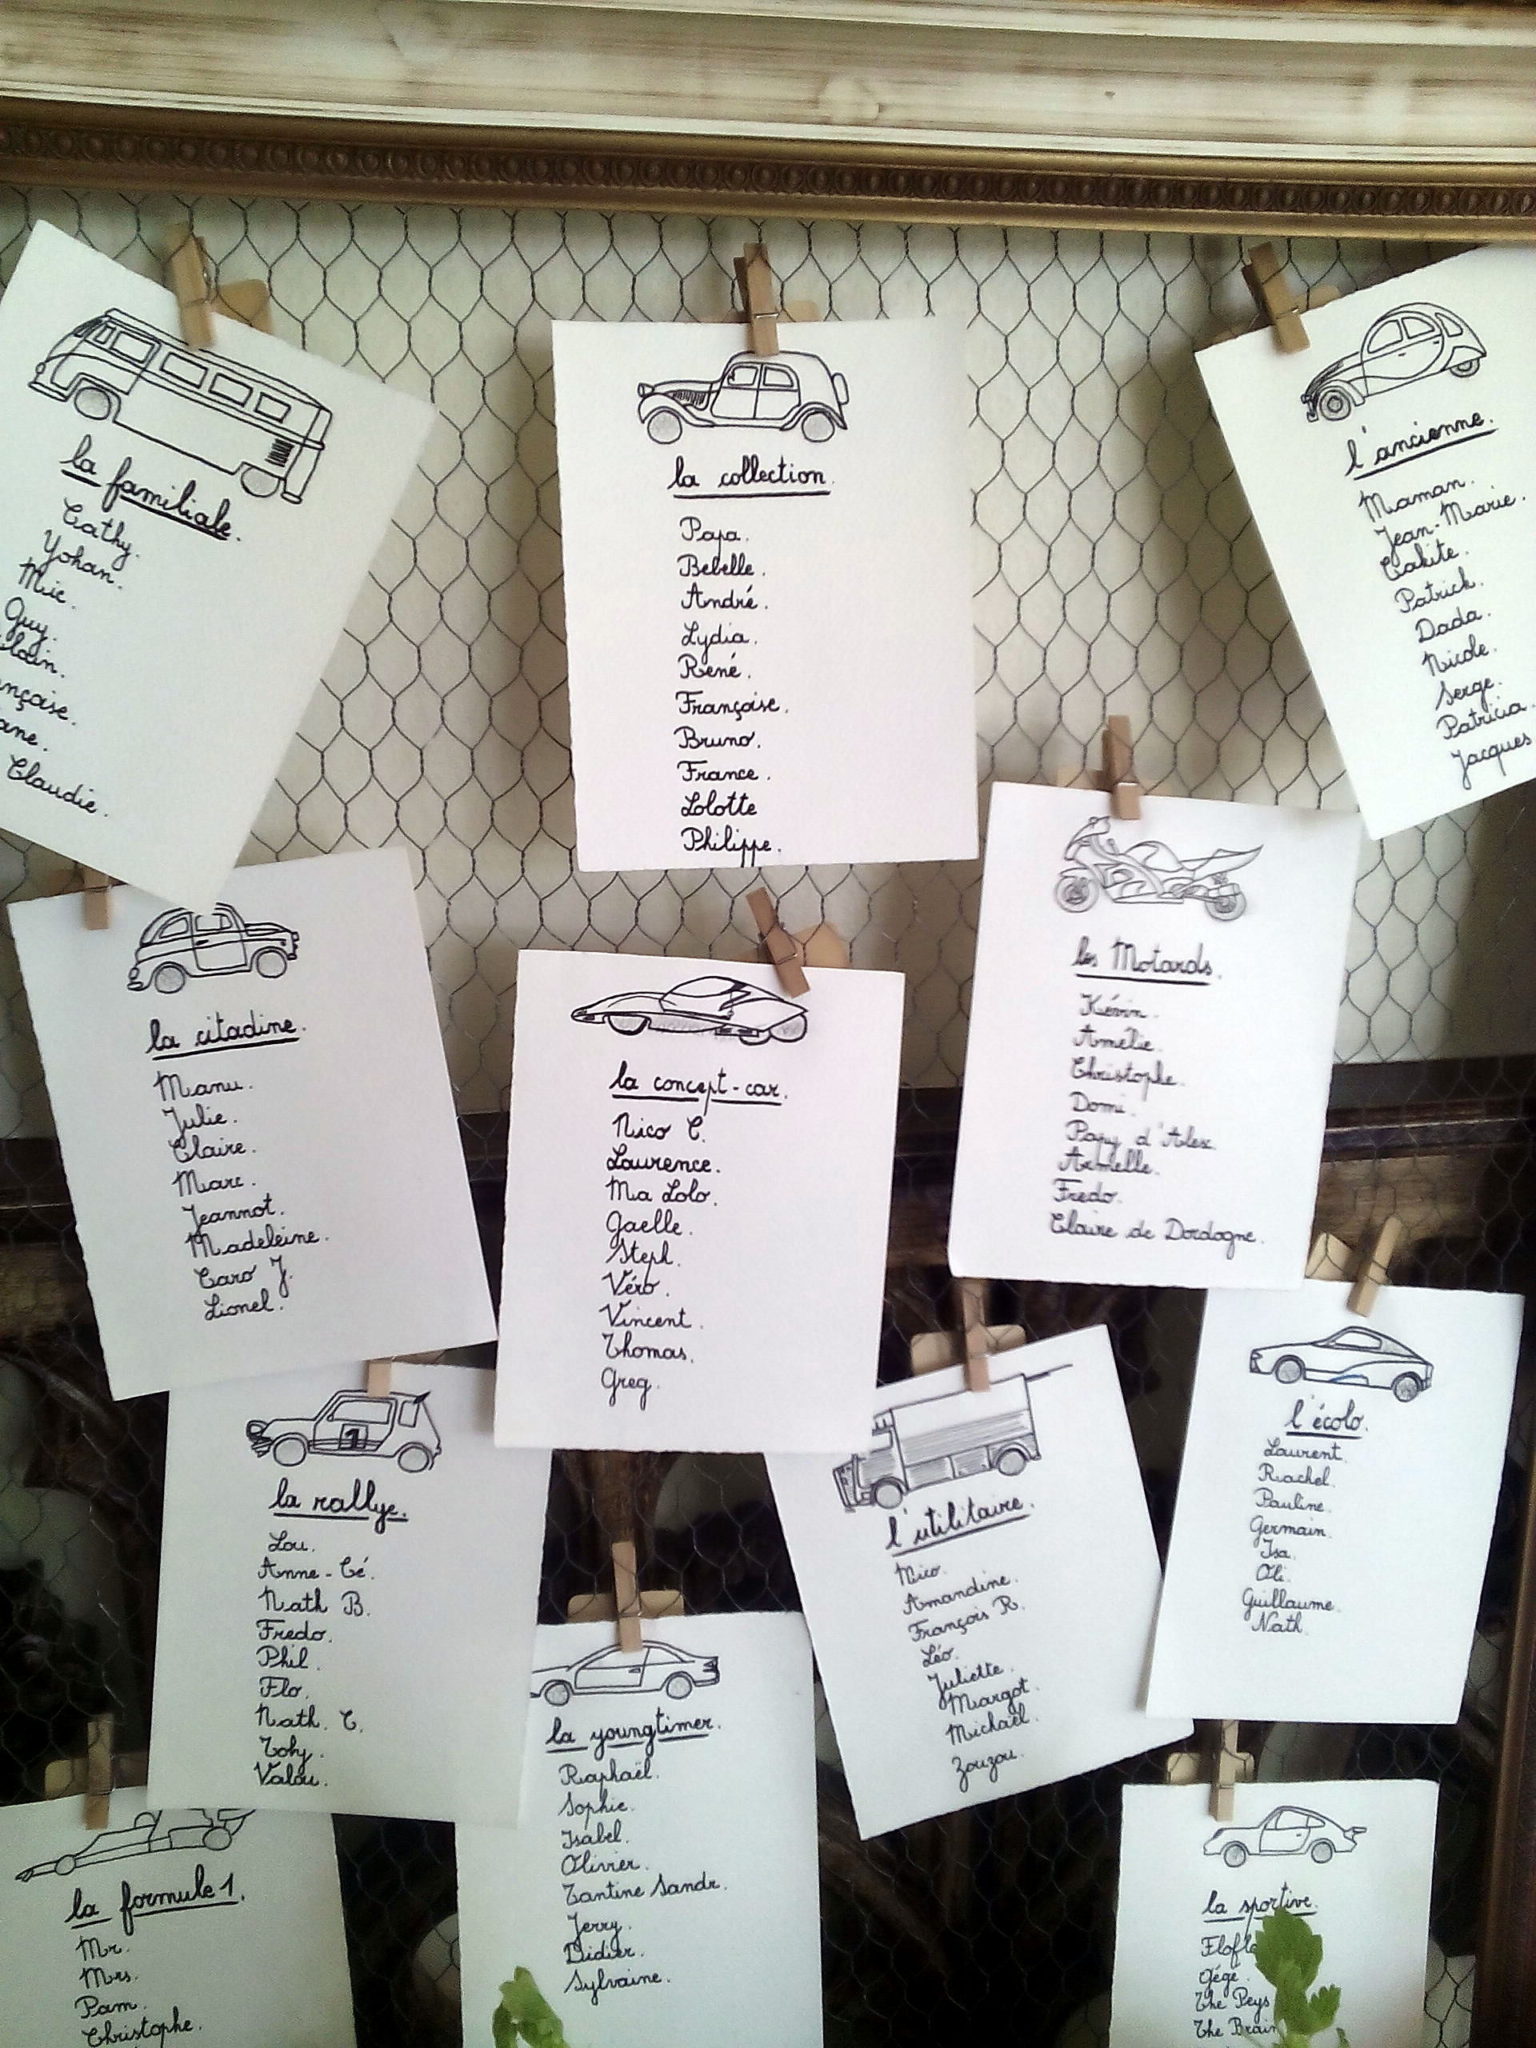 la familiale.
Cathy.
Yohan.
Mic.
Guy.
Claudie.
la collection.
Papa.
Bebelle.
André.
Lydia.
René.
Françoise.
Bruno.
France.
Lolotte
Philippe.
l'ancienne.
Maman.
Jean-Marie.
Cakite.
Patrick.
Dada.
Nicole.
Serge.
Patricia.
Jacques
la citadine.
Manu.
Julie.
Claire.
Marc.
Jeannot.
Madeleine.
Caro J.
Lionel.
la concept-car.
Nico C.
Laurence.
Ma Lolo.
Gaelle.
Steph.
Véro.
Vincent.
Thomas.
Greg.
les Motards.
Kévin.
Amélie.
Christophe.
Domi.
Papy d'Alex.
Armelle.
Fredo.
Claire de Dordogne.
la rallye.
1
Lou.
Anne-Cé.
Nath B.
Fredo.
Phil.
Flo.
Nath. C.
Toly.
Valou.
l'utilitaire.
Nico.
Amandine.
François R.
Léo.
Juliette.
Margot.
Michaël.
Zouzou.
l'écolo.
Laurent.
Rachel.
Pauline.
Germain.
Isa.
Oli.
Guillaume.
Nath.
la formule 1.
Mr.
Mrs.
Pam.
Christophe.
la youngtimer.
Raphaël.
Sophie.
Isabel.
Olivier.
Tantine Sandr.
Jerry.
Didier.
Sylvaine.
la sportive.
Gégé.
The Peys
The